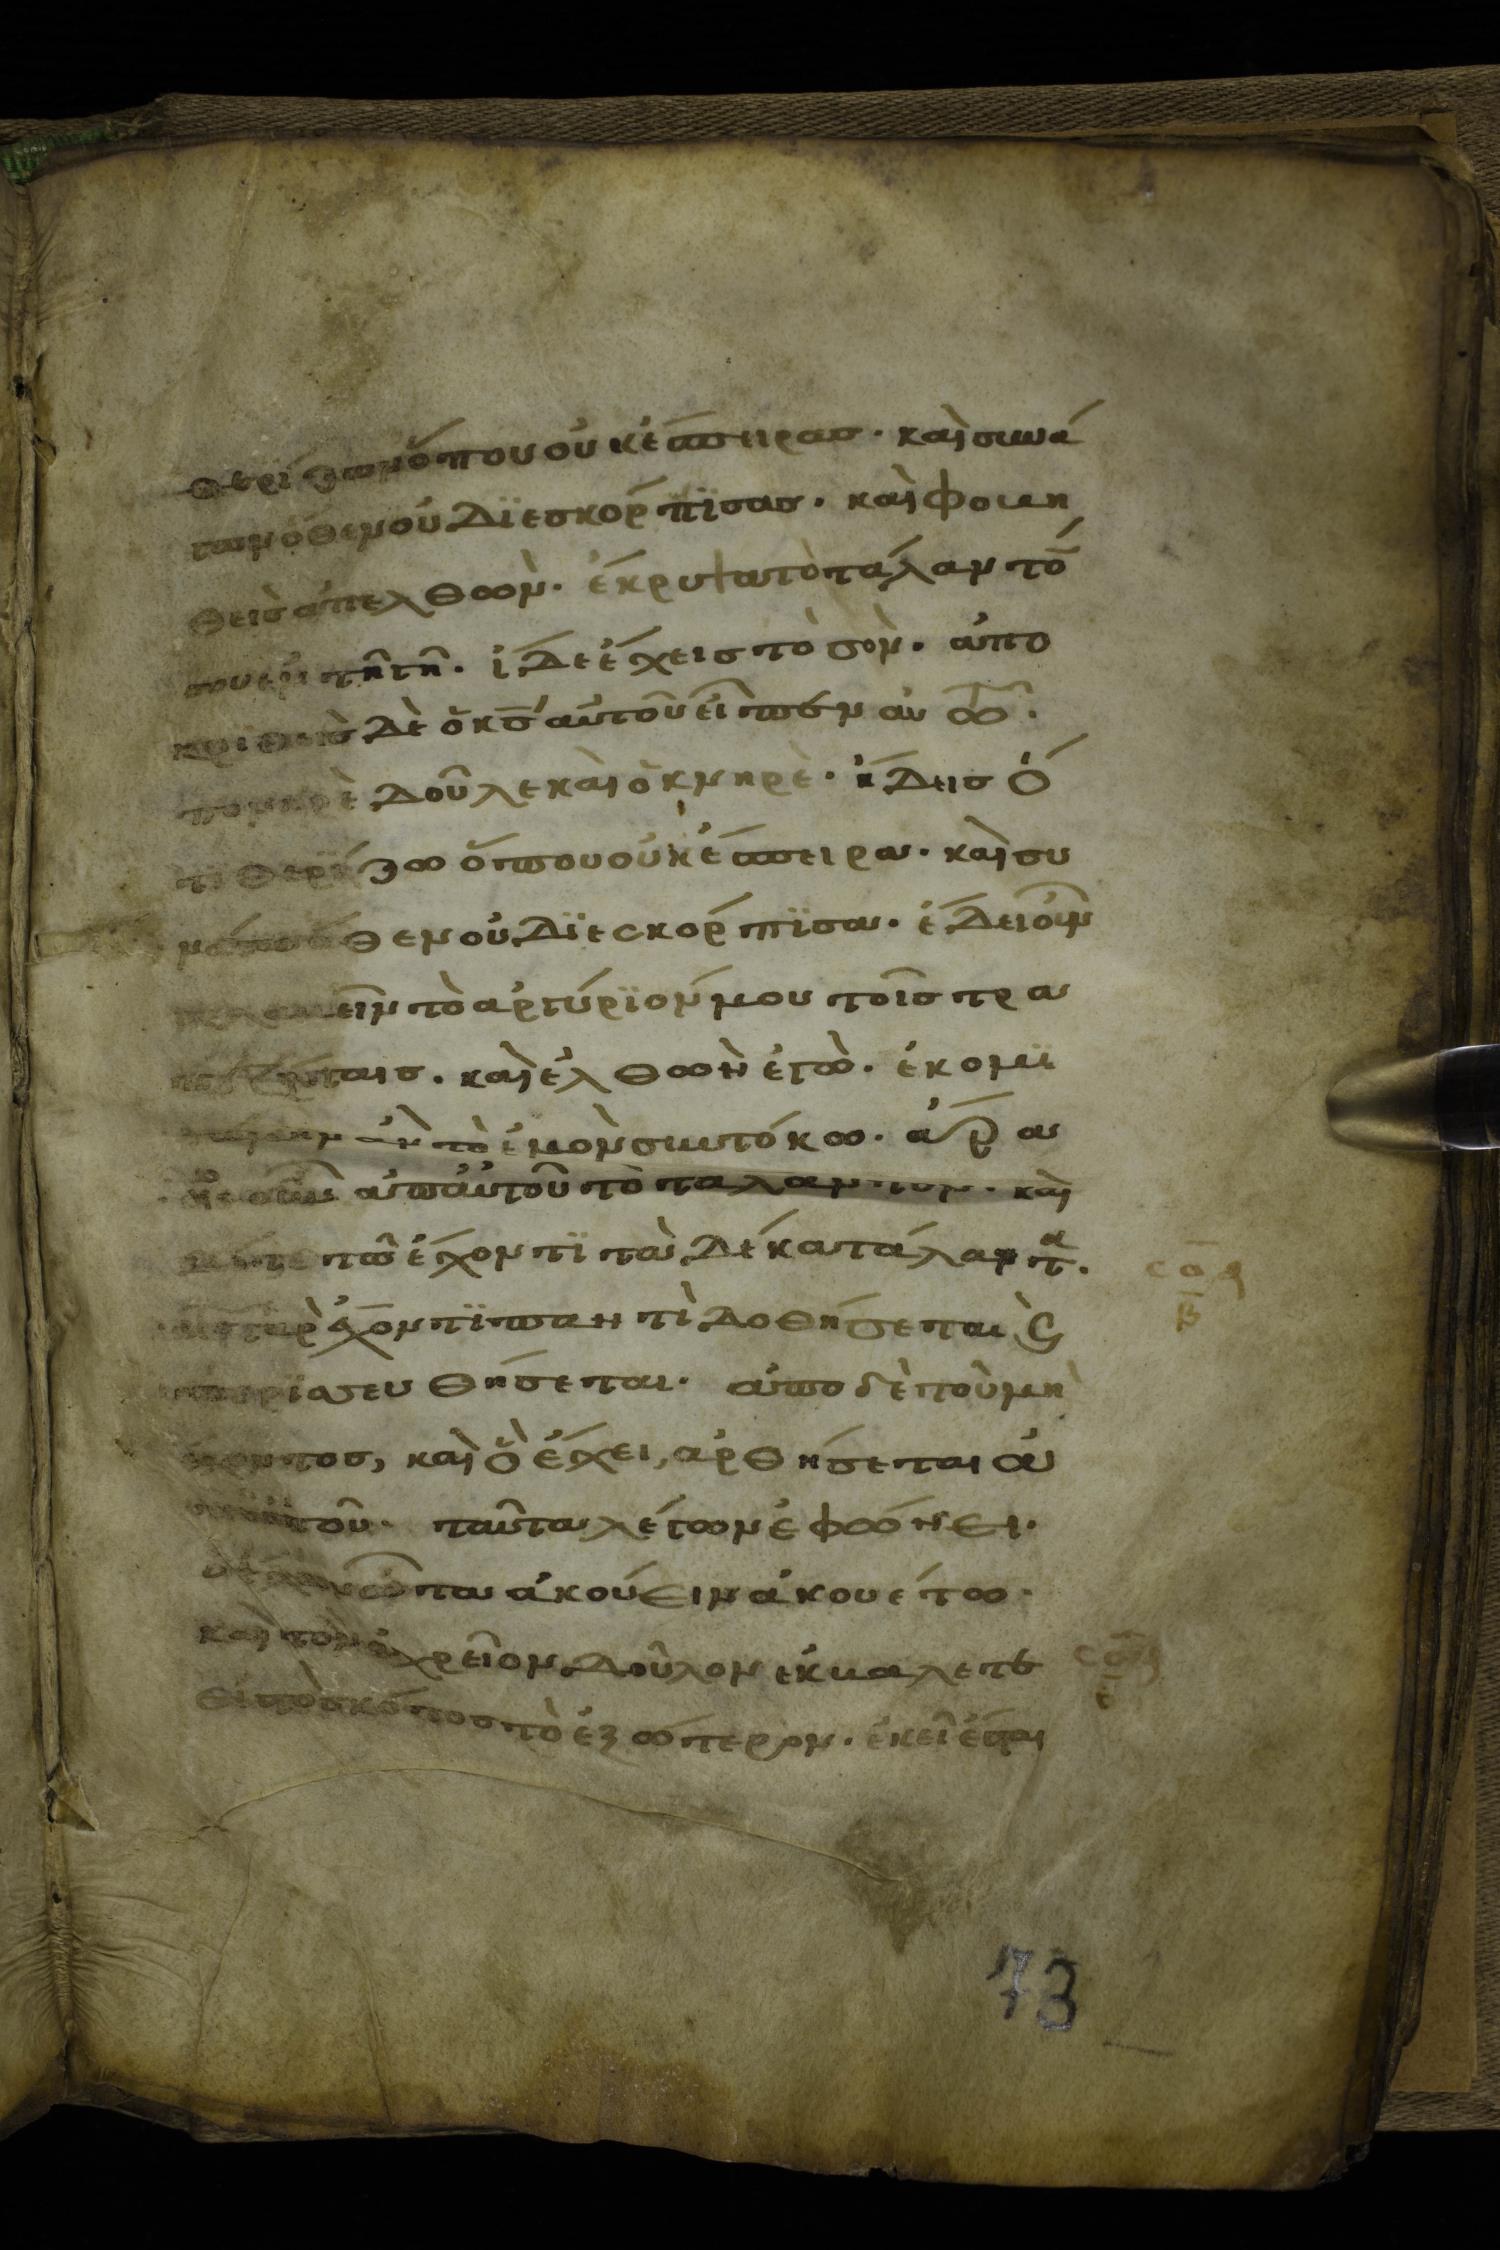 θερίζων ὅπου οὐκ ἔσπειρας. καὶ συνά
γων ὅθεν οὐ διεσκόρπϊσας. καὶ φοβη
θεὶς ἀπελθὼν. ἔκρυψα τὸ τάλαντό
σου ἐν τῆ γῆ. ἴδε ἔχεις τὸ σὸν. ἀπο
κριθεὶς δὲ ὁ κς̅ αὐτοῦ εἶπεν αὐτῶ.
πονηρὲ δοῦλε καὶ ὀκνηρὲ. ἤδεις ὅ
τι θερίζω ὅπου οὐκ ἔσπειρα. καὶ συ
νάγω ὅθεν οὐ διεσκόρπϊσα. ἔδει οὖν
βαλεῖν τὸ ἀργύρϊόν μου τοῖς τρα
πεζίταις. καὶ ἐλθὼν ἐγὼ. ἐκομϊ
σάμην ἂν τὸ ἐμὸν σὺν τόκω. ἄρα
τε οὖν ἀπ αὐτοῦ τὸ τάλαντον. καὶ
δότε τῶ ἔχοντϊ τὰ δέκα τάλαντα.
τῶ γὰρ ἔχοντϊ παντὶ δοθήσεται ϛ̀
περισσευθήσεται. ἀπο δὲ τοῦ μὴ
ἔχοντος, καὶ ὃ ἔχει, ἀρθήσεται ἀ
π αὐτοῦ. ταῦτα λέγων ἐφώνει.
ὁ ἔχων ὦτα ἀκούειν ἀκουέτω.
καὶ τὸν ἀχρεῖον δοῦλον ἐκβάλετε
εἰς τὸ σκότος τὸ ἐξώτερον. ἐκεῖ ἔσται
73